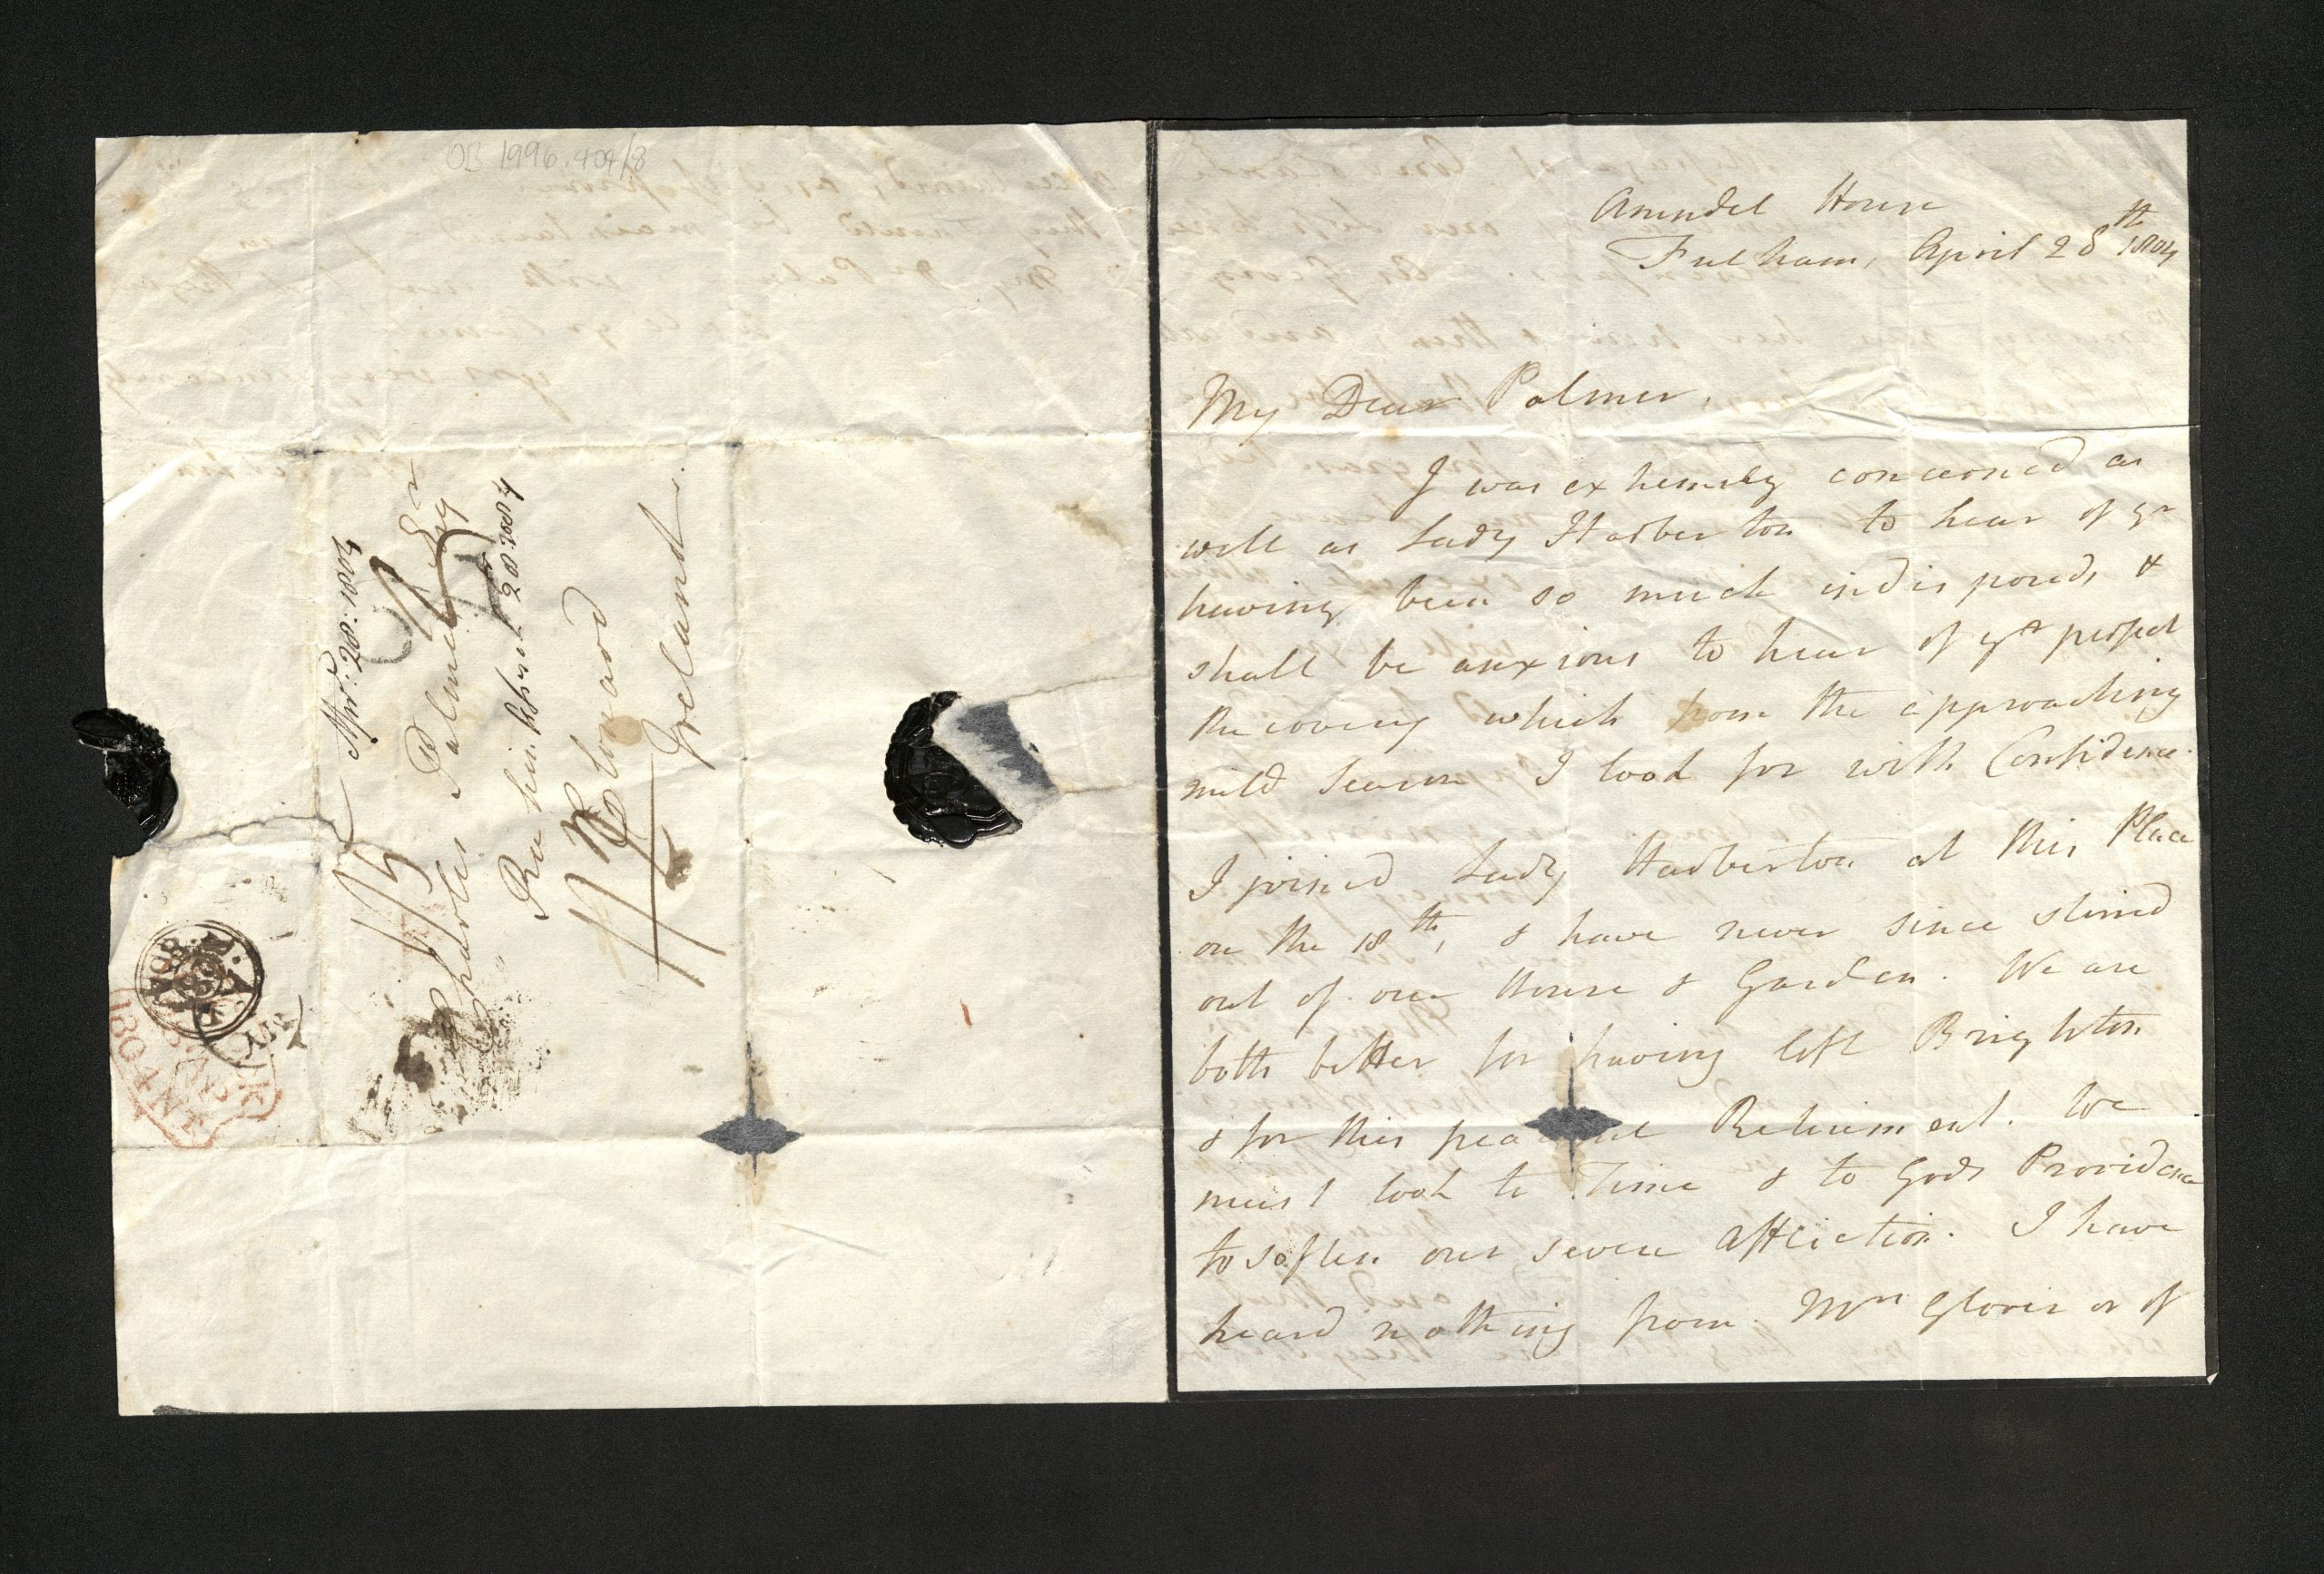 OB 1996.404/8
Apr: 28: 1804
Charles Palmer Esqr
Rahein
April 28: 1804
Edward
Ireland.
1804
1804
Arundel House
Fulham, April 28th 1804
My Dear Palmer,
I was extremely concerned as
well as Lady Harberton to hear of yr
having been so much indisposed, &
shall be anxious to hear of yr perfect
Recovery which from the approaching
mild Season I look for with Confidence.
I joined Lady Harberton at this Place
on the 18th, & have never since stirred
out of our House & Garden. We are
both better for having left Brighton
& for this Retirement. We
must look to Time & to Gods Providence
to soften our severe Affliction. I have
heard nothing from Mrs Glover or of